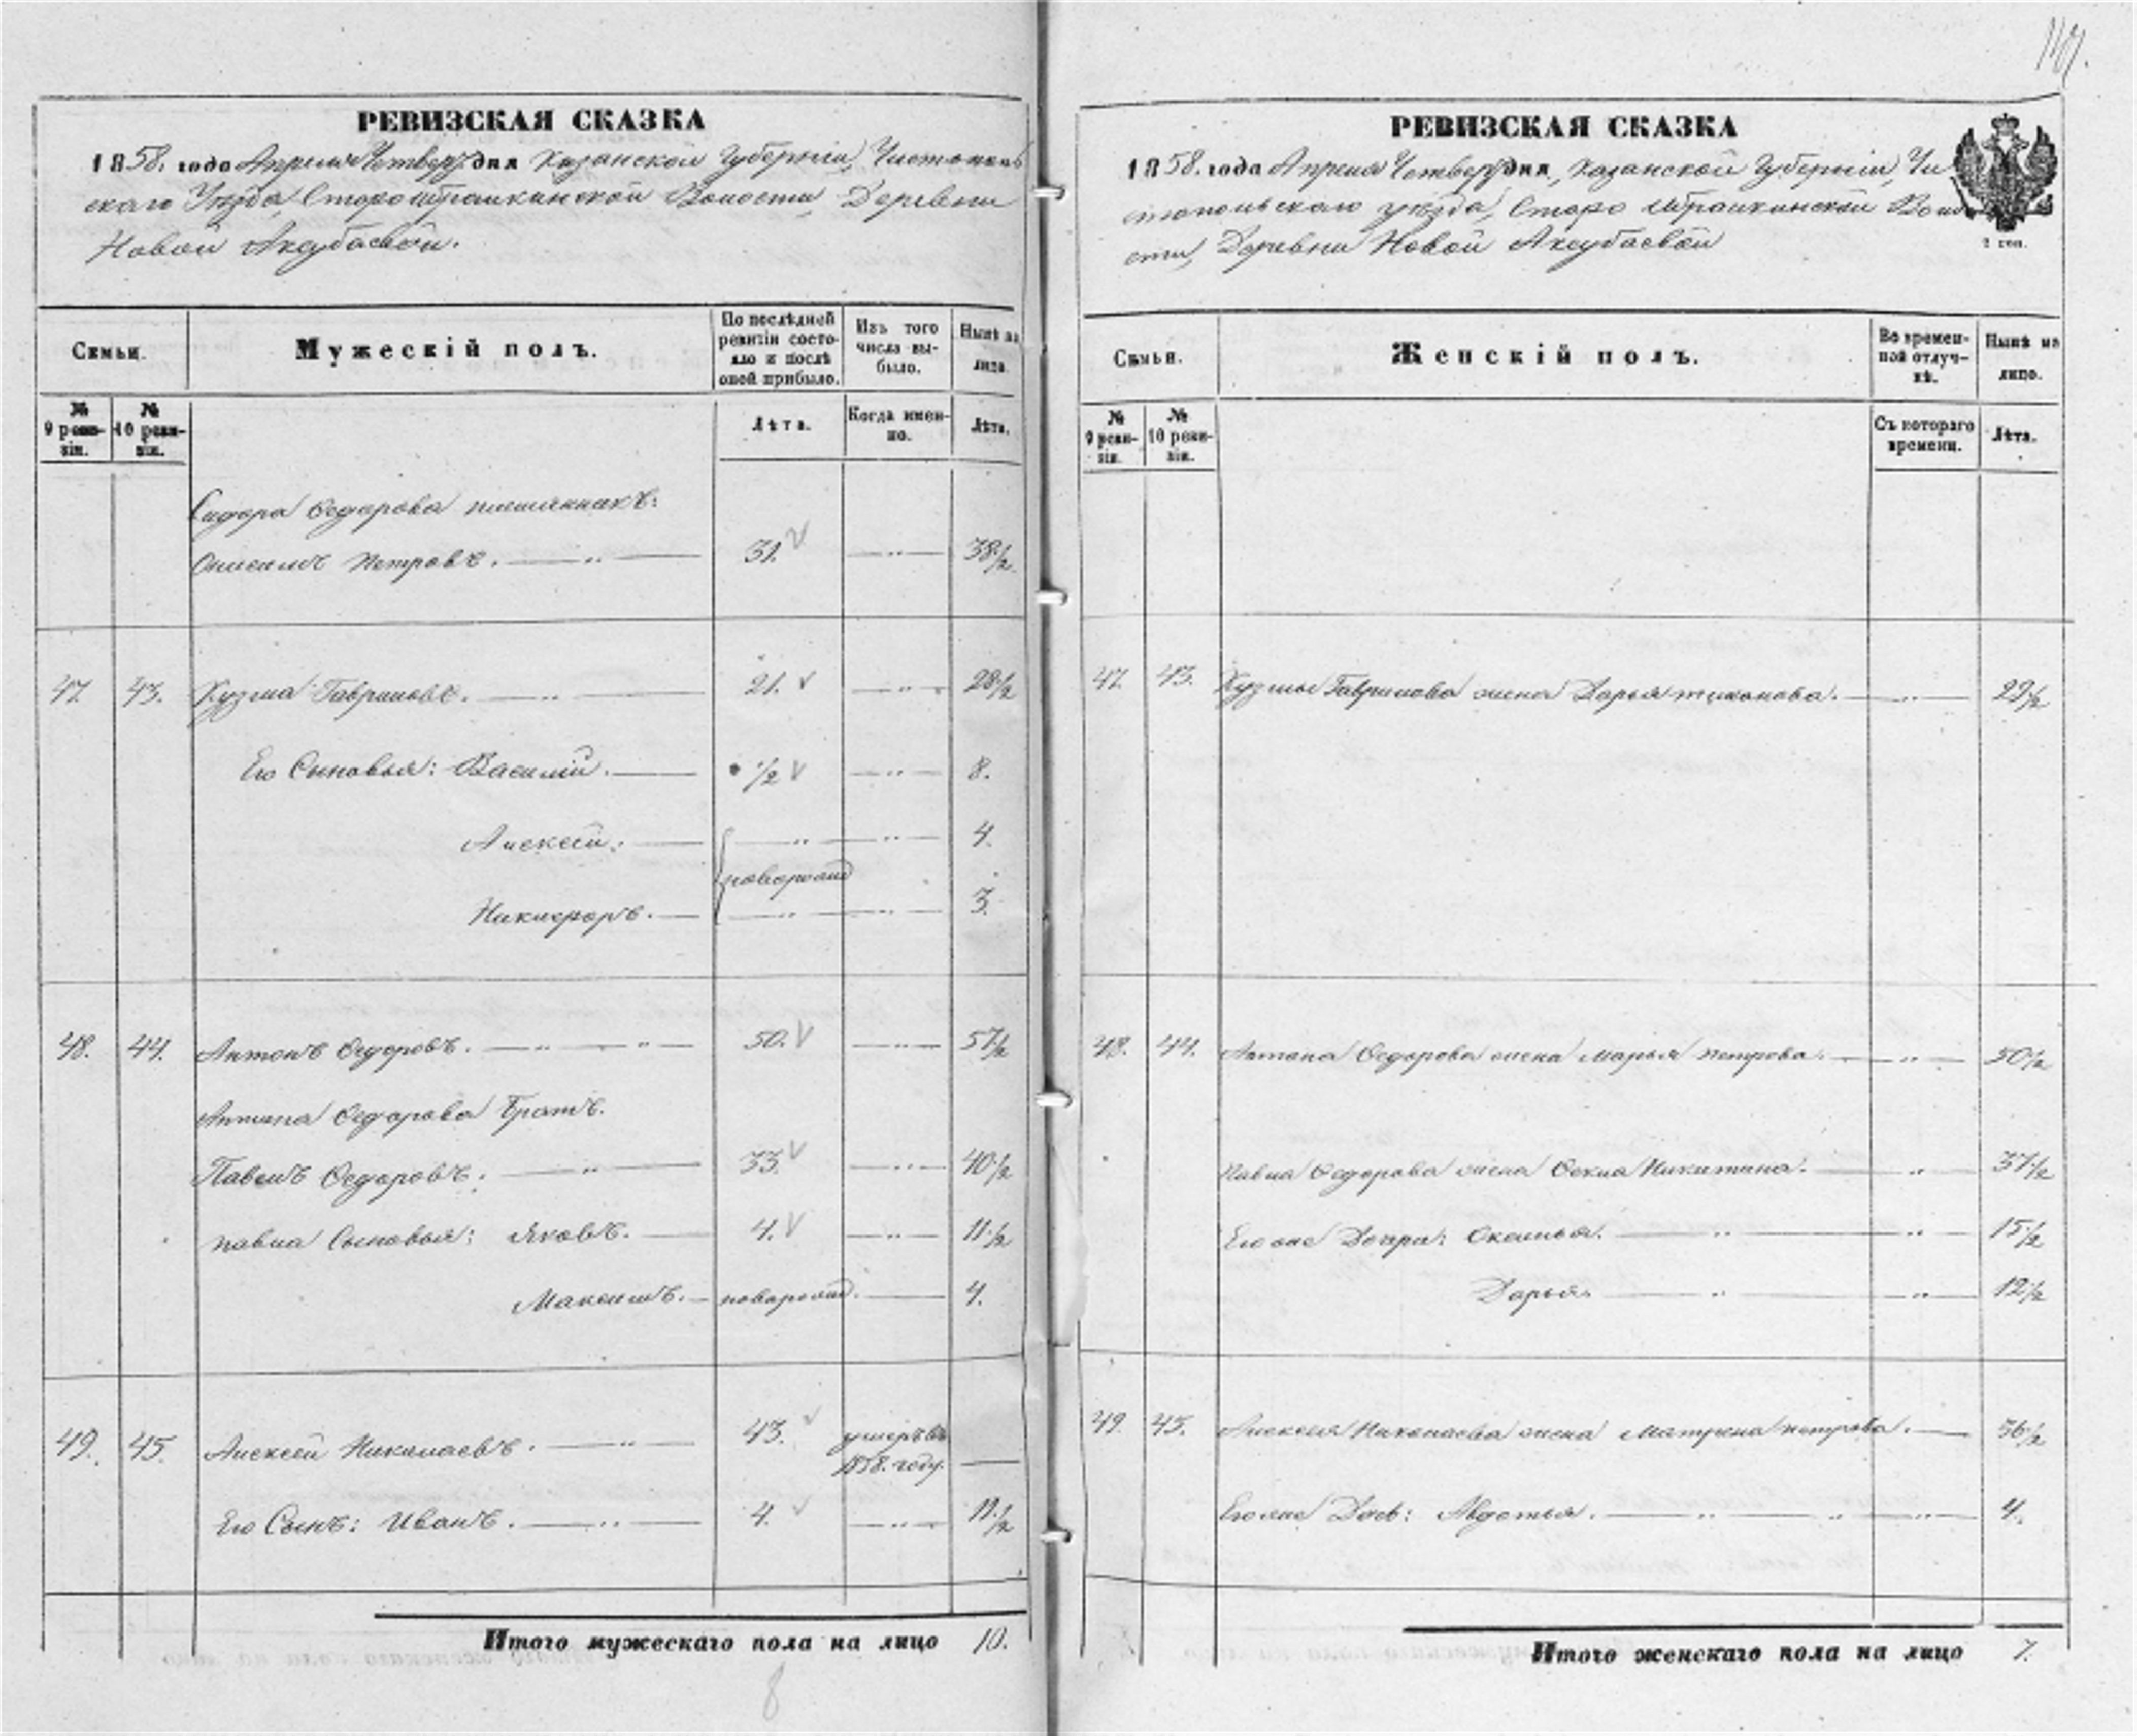 РЕВИЗСКАЯ СКАЗКА
1858. года Апреля Четверт. дня Казанской Губерніи, Чистополь
скаго Уезда, Старо Ибрайкинской Волости, Деревни
Новой Аксубаевой.
Семьи.
Мужескій полъ.
По послѣдней ревизіи состояло и послѣ оной прибыло.
Изъ того числа выбыло.
Нынѣ на лицо.
№ 9 ревизіи.
№ 10 ревизіи.
Лѣта.
Когда именно.
Лѣта.
Сидора Федорова племянникъ:
Анисимъ Петровъ. 31. 38 1/2
47. 43. Кузма Гавриловъ. 21. 28 1/2
Его Сыновья: Василій. 1/2 8.
Алексей: 4.
новорожд
Никифоръ. 3.
48. 44. Антонъ Федоровъ. 50. 57 1/2
Антона Федорова Братъ.
Павелъ Федоровъ. 33. 40 1/2
павла Сыновья: Яковъ. 4. 11 1/2
Максимъ. новорожд. 4.
49. 45. Алексей Николаевъ. 43. умеръ въ
1858. году.
Его Сынъ: Иванъ. 4. 11 1/2
Итого мужескаго пола на лицо 10.
8
РЕВИЗСКАЯ СКАЗКА
1858. года Апреля Четверт. дня, Казанской Губерніи, Чи
стопольскаго уезда, Старо Ибрайкинской Воло
сти, Деревни Новой Аксубаевой
Семьи.
Женскій полъ.
Во временной отлучкѣ.
Нынѣ на лицо.
№ 9 ревизіи.
№ 10 ревизіи.
Съ котораго времени.
Лѣта.
47. 43. Кузмы Гаврилова жена Дарья тихонова. 29 1/2
48. 44. Антона Федорова жена марья петрова. 50 1/2
павла Федорова жена Фекла Никитина. 37 1/2
Его же Дочери: 15 1/2
Дарья. 12 1/2
49. 45. Алексея Николаева жена Матрена петрова. 56 1/2
Его же Дочь: Авдотья. 4.
Итого женскаго пола на лицо 7.